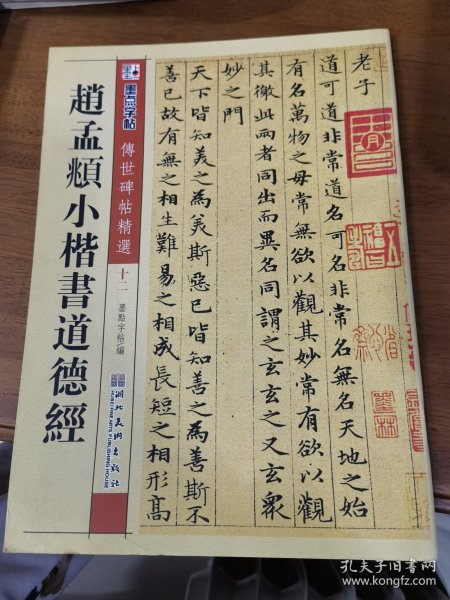 墨点
墨点字帖
傳世碑帖精選
十二
墨點字帖/編
湖北美術出版社
HUBEI FINE ARTS PUBLISHING HOUSE
趙孟頫小楷書道德經
老子
道可道非常道名可名非常名無名天地之始
有名萬物之母常無欲以觀其妙常有欲以觀
其徼此兩者同出而異名同謂之玄玄之又玄衆
妙之門
天下皆知美之為美斯惡已皆知善之為善斯不
善已故有無之相生難易之相成長短之相形高
孔夫子旧书网
www.kongfz.com